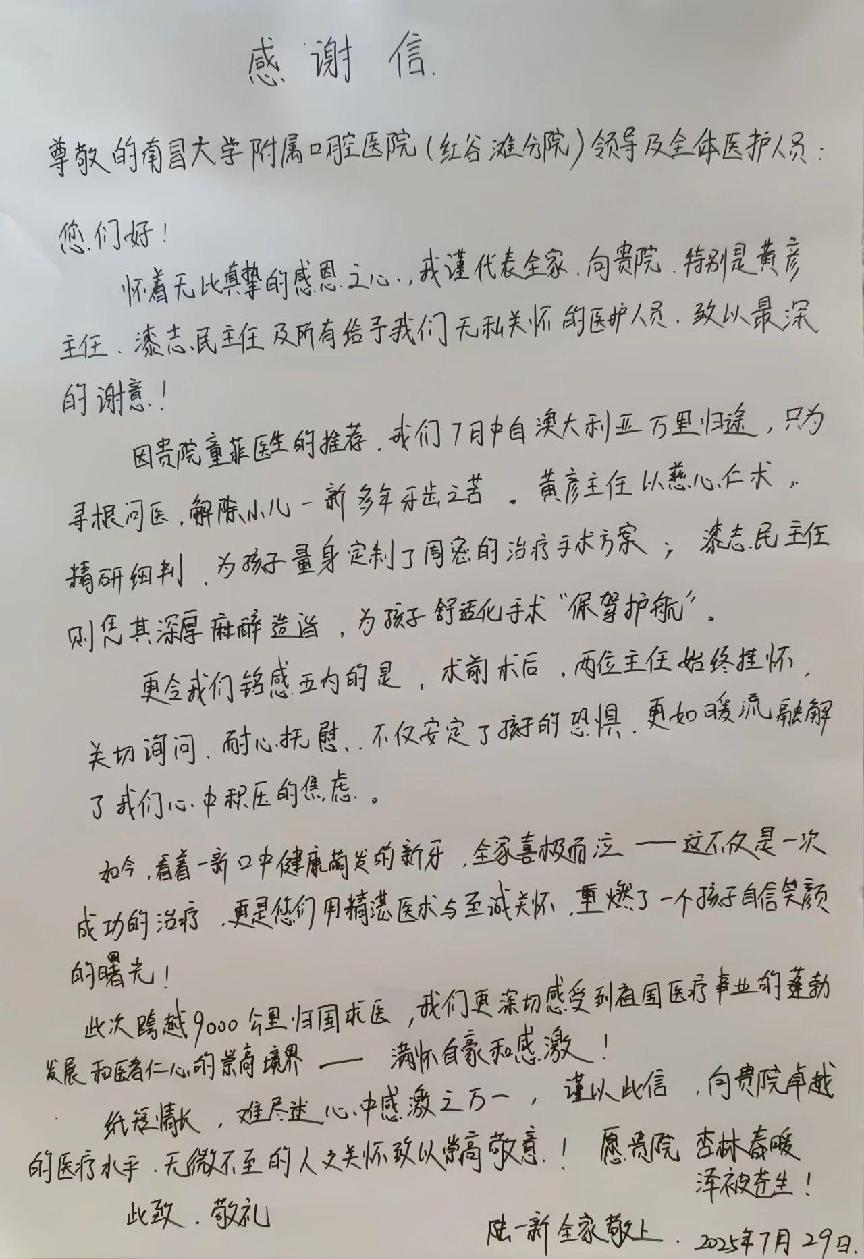 感谢信.
尊敬的南昌大学附属口腔医院(红谷滩分院)领导及全体医护人员:
您们好!
怀着无比真挚的感恩之心,我谨代表全家,向贵院,特别是黄彦
主任、漆志民主任及所有给予我们无私关怀的医护人员,致以最深
的谢意!
因贵院童菲医生的推荐,我们7月中自澳大利亚万里归途,只为
寻根问医,解除小儿一新多年牙齿之苦。黄彦主任以慈心仁术,
精研细判,为孩子量身定制了周密的治疗手术方案;漆志民主任
则凭其深厚麻醉造诣,为孩子舒适化手术“保驾护航”。
更令我们铭感五内的是,术前术后,两位主任始终挂怀,
关切询问,耐心抚慰,不仅安定了孩子的恐惧,更如暖流融解
了我们心中积压的焦虑。
如今,看着一新口中健康萌发的新牙,全家喜极而泣——这不仅是一次
成功的治疗,更是您们用精湛医术与至诚关怀,重燃了一个孩子自信笑颜
的曙光!
此次跨越9000公里归国求医,我们更深切感受到祖国医疗事业的蓬勃
发展和医者仁心的崇高境界——满怀自豪和感激!
纸短情长,难尽述心中感激之万一,谨以此信,向贵院卓越
的医疗水平、无微不至的人文关怀致以崇高敬意!愿贵院 杏林春暖
泽被苍生!
此致、敬礼
陆一新全家敬上. 2025年7月29日.